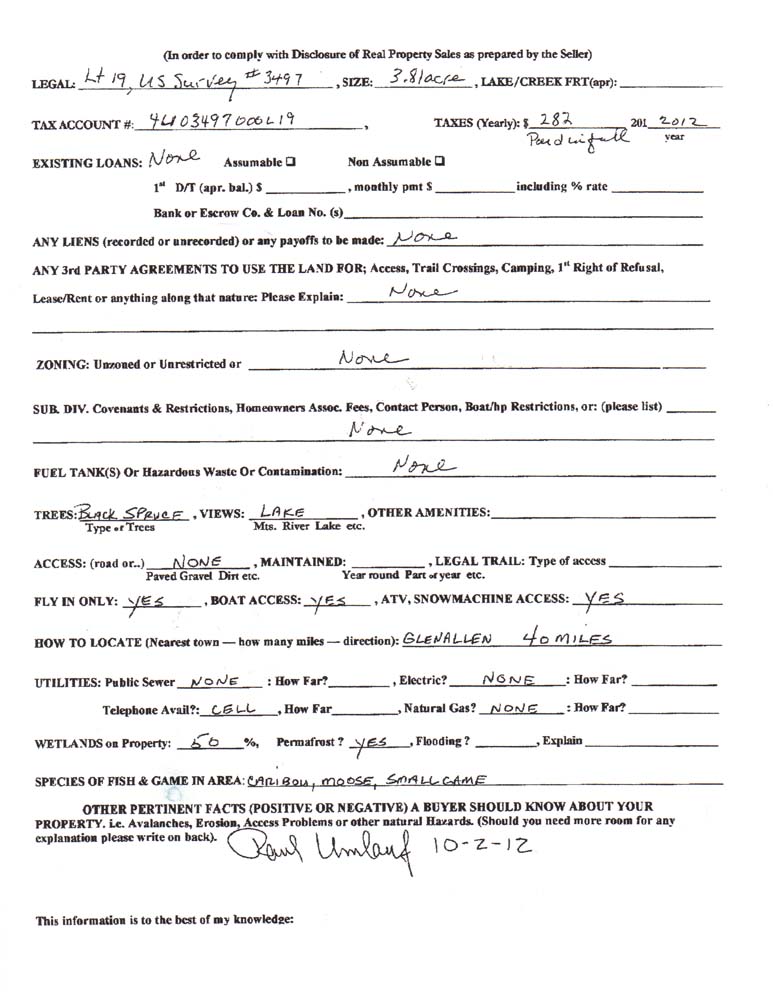 (In order to comply with Disclosure of Real Property Sales as prepared by the Seller)
LEGAL: Lt 19, US Survey #3497, SIZE: 3.8/acre, LAKE/CREEK FRT(apr): ____
TAX ACCOUNT #: 4403497000L19, TAXES (Yearly): $ 282 201_ 2012
Paid in full year
EXISTING LOANS: None Assumable ☐ Non Assumable ☐
1st D/T (apr. bal.) $ ____, monthly pmt $ ____ including % rate ____
Bank or Escrow Co. & Loan No. (s)____
ANY LIENS (recorded or unrecorded) or any payoffs to be made: None
ANY 3rd PARTY AGREEMENTS TO USE THE LAND FOR; Access, Trail Crossings, Camping, 1st Right of Refusal,
Lease/Rent or anything along that nature: Please Explain: None
ZONING: Unzoned or Unrestricted or None
SUB. DIV. Covenants & Restrictions, Homeowners Assoc. Fees, Contact Person, Boat/hp Restrictions, or: (please list) ____
None
FUEL TANK(S) Or Hazardous Waste Or Contamination: None
TREES: BLACK SPRUCE, VIEWS: LAKE, OTHER AMENITIES: ____
Type of Trees Mts. River Lake etc.
ACCESS: (road or..) NONE, MAINTAINED: ____, LEGAL TRAIL: Type of access ____
Paved Gravel Dirt etc. Year round Part of year etc.
FLY IN ONLY: YES, BOAT ACCESS: YES, ATV, SNOWMACHINE ACCESS: YES
HOW TO LOCATE (Nearest town — how many miles — direction): GLENALLEN 40 MILES
UTILITIES: Public Sewer NONE : How Far? ____, Electric? NONE : How Far? ____
Telephone Avail?: CELL, How Far ____, Natural Gas? NONE : How Far? ____
WETLANDS on Property: 50 %, Permafrost ? YES, Flooding ? ____, Explain ____
SPECIES OF FISH & GAME IN AREA: CARIBOU, MOOSE, SMALL GAME
OTHER PERTINENT FACTS (POSITIVE OR NEGATIVE) A BUYER SHOULD KNOW ABOUT YOUR
PROPERTY. i.e. Avalanches, Erosion, Access Problems or other natural Hazards. (Should you need more room for any
explanation please write on back). Paul Umlauf 10-2-12
This information is to the best of my knowledge: